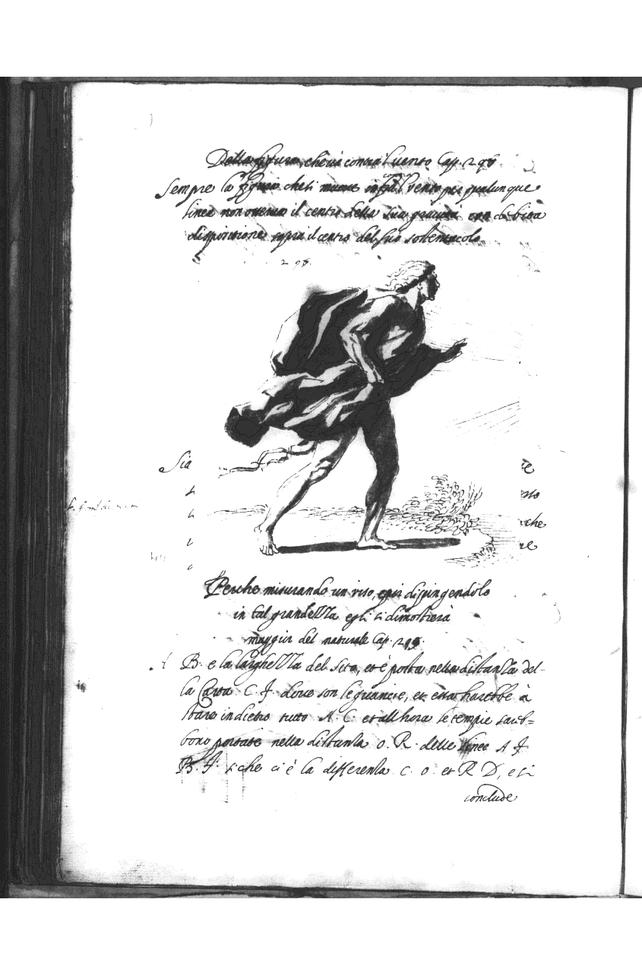 Della figura, che và contra l uento Cap. 298
Sempre la figura che si muove infra'l vento per qualunque
linea non osserua il centro della sua gravità con debita
dispositione sopra il centro del suo sostentacolo.
298.
Sia
Perche misurando un viso, e poi dipingendolo
in tal grandezza egli si dimostrerà
maggior del naturale Cap. 299.
A B. è la larghezza del sito, et è posta nella distanza del-
la Carta C. F. doue son le guancie, et essa harebbe à
stare indietro tutto A. C. et all'hora le tempie sareb-
bono portate nella distanza O. R. delle linee A F.
B. F. si che ci è la differenza C. O. et R D, e si
conclude